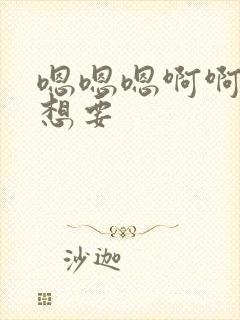 嗯嗯嗯啊啊
想要
沙迦